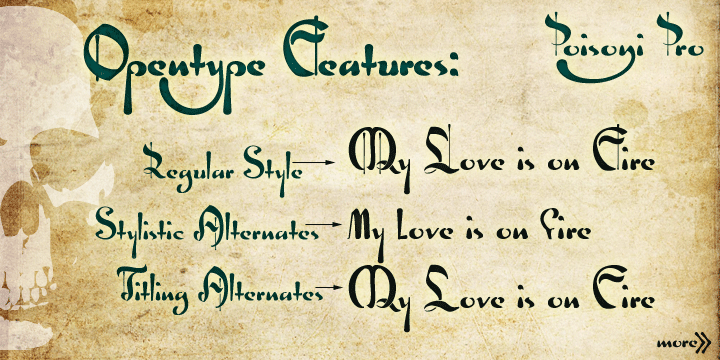 Opentype Features:
Poisoni Pro
Regular Style
My Love is on Fire
Stylistic Alternates
My Love is on fire
Titling Alternates
My Love is on Fire
more